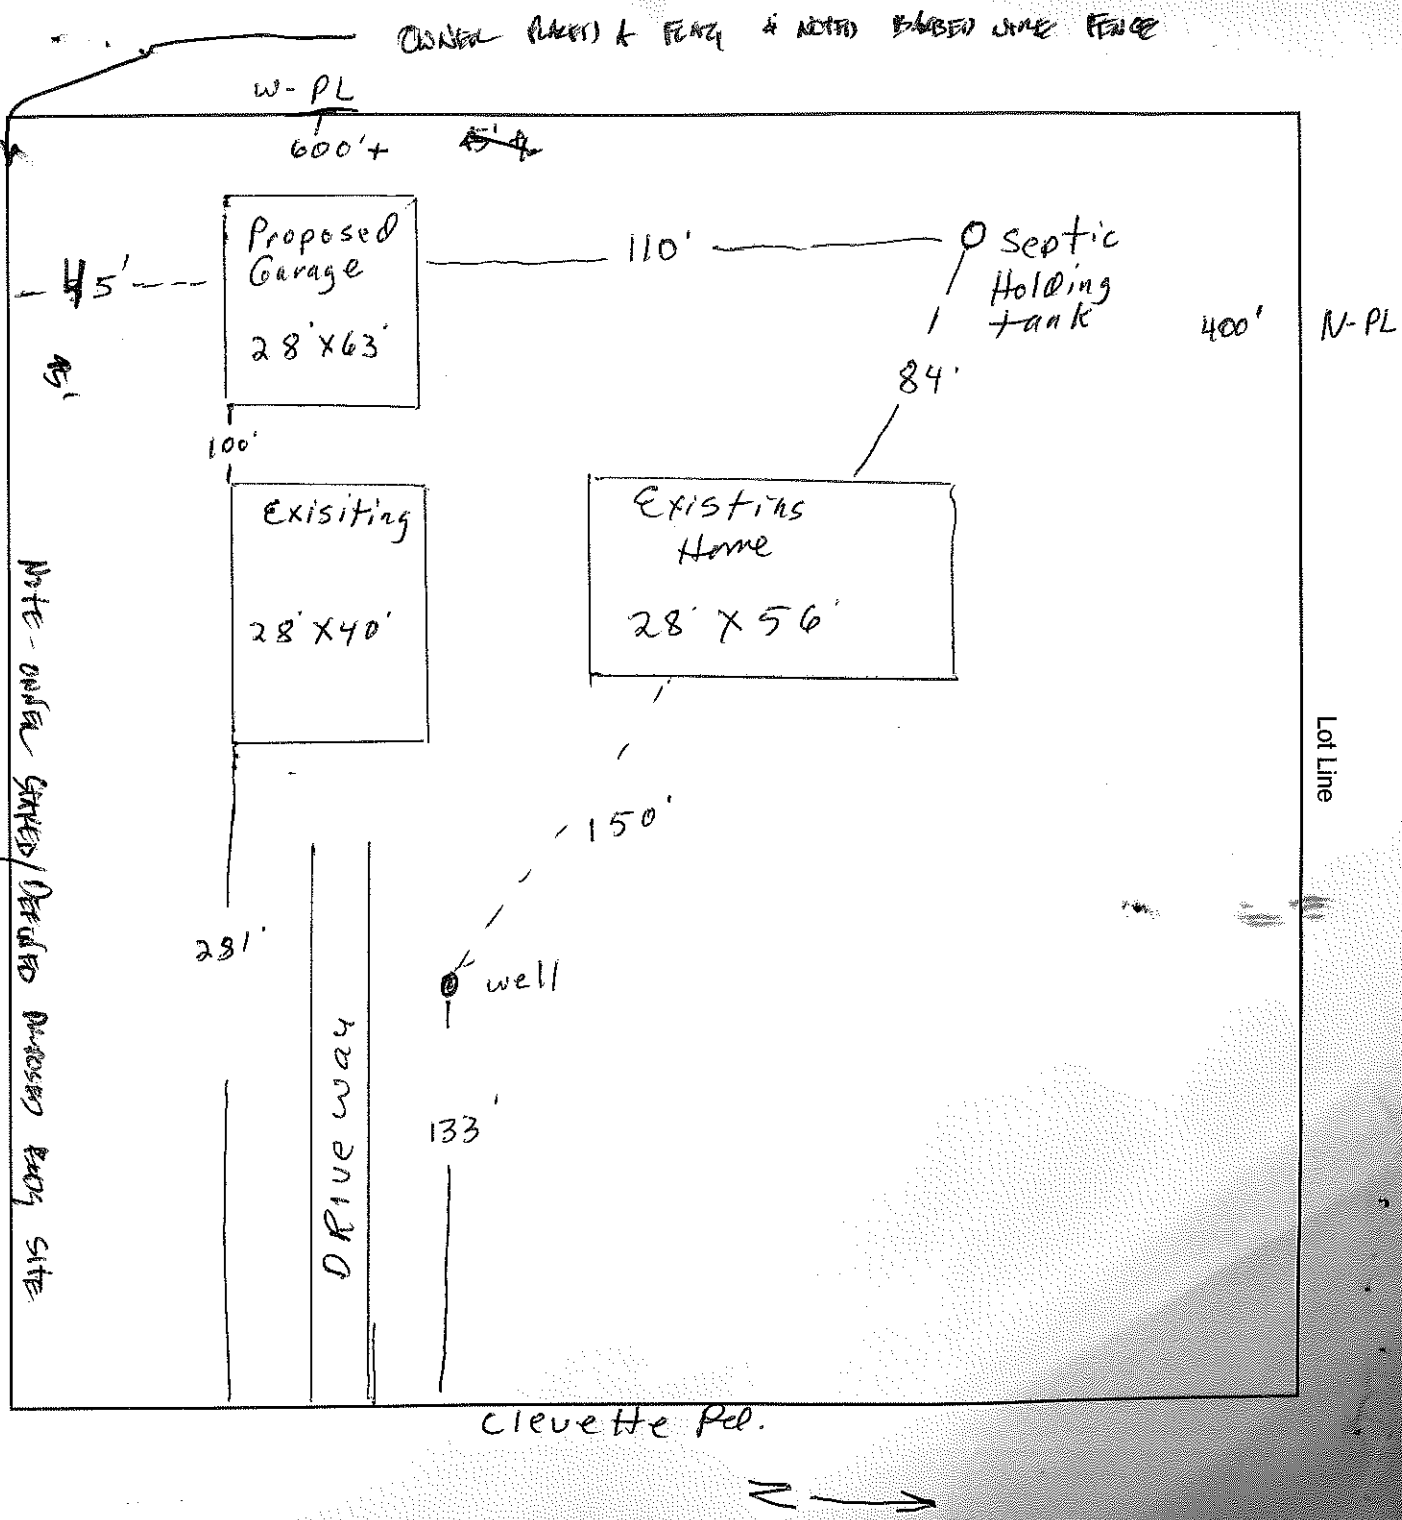 OWNER PLACED A FLAG & NOTED BARBED WIRE FENCE
W-PL
600'+
Proposed
Garage
28'X63'
45'
110'
Septic
Holding
tank
400'
N-PL
45'
84'
100'
Exisiting
28'X40'
Existing
Home
28'X56'
Note-OWNER STAKED/DEFINED PROPOSED BLDG SITE
Lot Line
150'
281'
well
Driveway
133'
Clevette Rd.
N